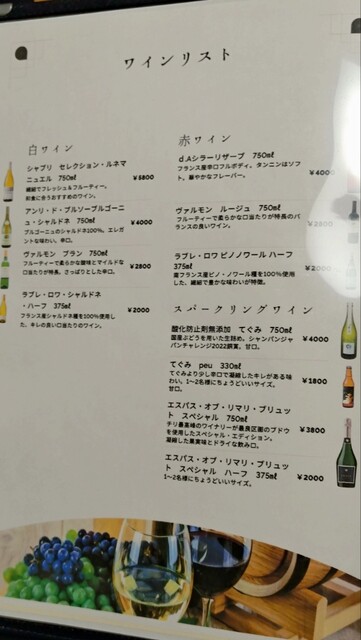 ワインリスト
白ワイン
シャブリ　セレクション・ルネマ
ニュエル　750㎖　¥5800
繊細でフレッシュ＆フルーティー。
和食に合うおすすめのワイン。
アンリ・ド・ブルソーブルゴーニ
ュ・シャルドネ　750㎖　¥4000
ブルゴーニュのシャルドネ100%。エレガ
ントな味わい。辛口。
ヴァルモン　ブラン　750㎖　¥2800
フルーティーで柔らかな酸味とマイルドな
口当たりが特長。さっぱりとした辛口。
ラブレ・ロワ・シャルドネ
・ハーフ　375㎖　¥2000
フランス産シャルドネ種を100%使用し
た、キレの良い口当たりのワイン。
赤ワイン
d.Aシラーリザーブ　750㎖　¥4000
フランス産辛口フルボディ。タンニンはソフ
ト。華やかなフレーバー。
ヴァルモン　ルージュ　750㎖　¥2800
フルーティーで柔らかな口当たりが特長のバ
ランスの良いワイン。
ラブレ・ロワ ピノノワール ハーフ
375㎖　¥2000
南フランス産ピノ・ノワール種を100%使用
した、繊細で豊かな味わいが特徴。
スパークリングワイン
酸化防止剤無添加　てぐみ　750㎖　¥4000
国産ぶどうを用いた生詰め。シャンパンジャ
パンチャレンジ2022銅賞。甘口。
てぐみ　peu　330㎖　¥1800
てぐみより少し辛口で凝縮したキレがある味
わい。1〜2名様にちょうどいいサイズ。
甘口。
エスパス・オブ・リマリ・ブリュッ
ト　スペシャル　750㎖　¥3800
チリ最高峰のワイナリーが最良区画のブドウ
を使用したスペシャル・エディション。
凝縮した果実味とドライな飲み口。
エスパス・オブ・リマリ・ブリュッ
ト　スペシャル　ハーフ　375㎖　¥2000
1〜2名様にちょうどいいサイズ。